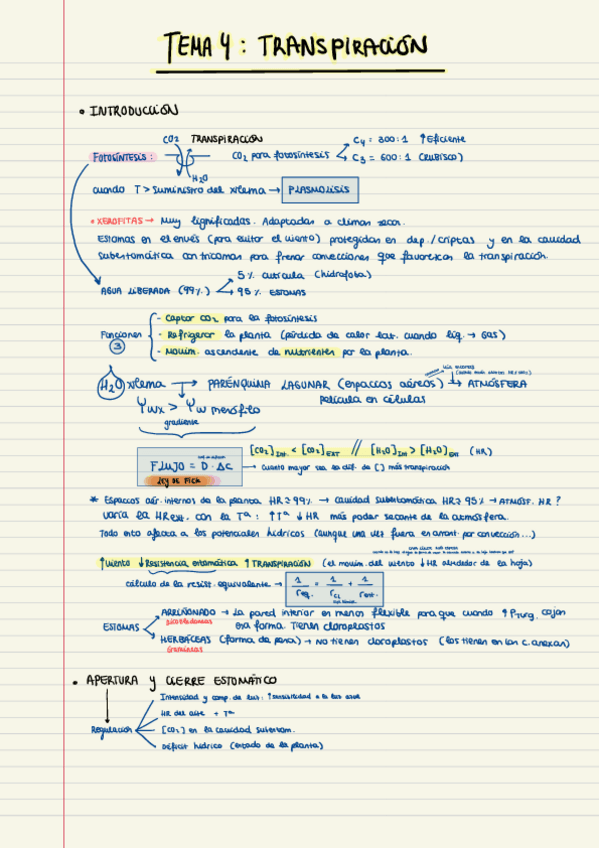 TEMA 4 : TRANSPIRACIÓN
• INTRODUCCIÓN
CO2 TRANSPIRACIÓN
C4 = 300:1 ↑Eficiente
FOTOSÍNTESIS :
CO2 para fotosíntesis
C3 = 600:1 (RUBISCO)
H2O
cuando T > suministro del xilema → PLASMOLISIS
* XEROFITAS → Muy lignificadas. Adaptadas a climas secos.
Estomas en el envés (para evitar el viento) protegidas en dep./criptas y en la cavidad
subestomática con tricomas para frenar convecciones que favorezcan la transpiración.
5% cutícula (hidrofoba)
AGUA LIBERADA (99%)
95% ESTOMAS
- Captar CO2 para la fotosíntesis
Funciones - Refrigerar la planta (pérdida de calor lat. cuando liq. → Gas)
3
- Movim. ascendente de nutrientes por la planta.
H2O xilema → PARÉNQUIMA LAGUNAR (espacios aéreos) → ATMÓSFERA
película en células
Ψwx > Ψw mesófilo
gradiente
[CO2]Int < [CO2]EXT // [H2O]Int > [H2O]Ext (HR)
FLUJO = D · ΔC → cuanto mayor sea la dif. de [] más transpiración
LEY DE FICK
* Espacios aér. internos de la planta HR≥99% → cavidad subestomática HR≥95% → ATMÓSF. HR?
varía la HRext. con la Tª : ↑Tª ↓HR más poder secante de la atmósfera.
Todo esto afecta a los potenciales hídricos (aunque una vez fuera en arrast. por convección...)
↑viento ↓Resistencia estomática ↑TRANSPIRACIÓN (el movim. del viento ↓HR alrededor de la hoja)
cálculo de la resist. equivalente → 1/req. = 1/rCL + 1/rest.
ARRIÑONADO → La pared interior es menos flexible para que cuando ↑Pturg. cojan
dicotiledóneas esa forma. Tienen cloroplastos
ESTOMAS
HERBÁCEAS (forma de pesa) → no tienen cloroplastos (los tienen en las c. anexas)
Gramíneas
• APERTURA y CIERRE ESTOMÁTICO
Intensidad y comp. de luz: ↑sensibilidad a la luz azul
HR del aire + Tª
Regulación [CO2] en la cavidad subestom.
Déficit hídrico (estado de la planta)